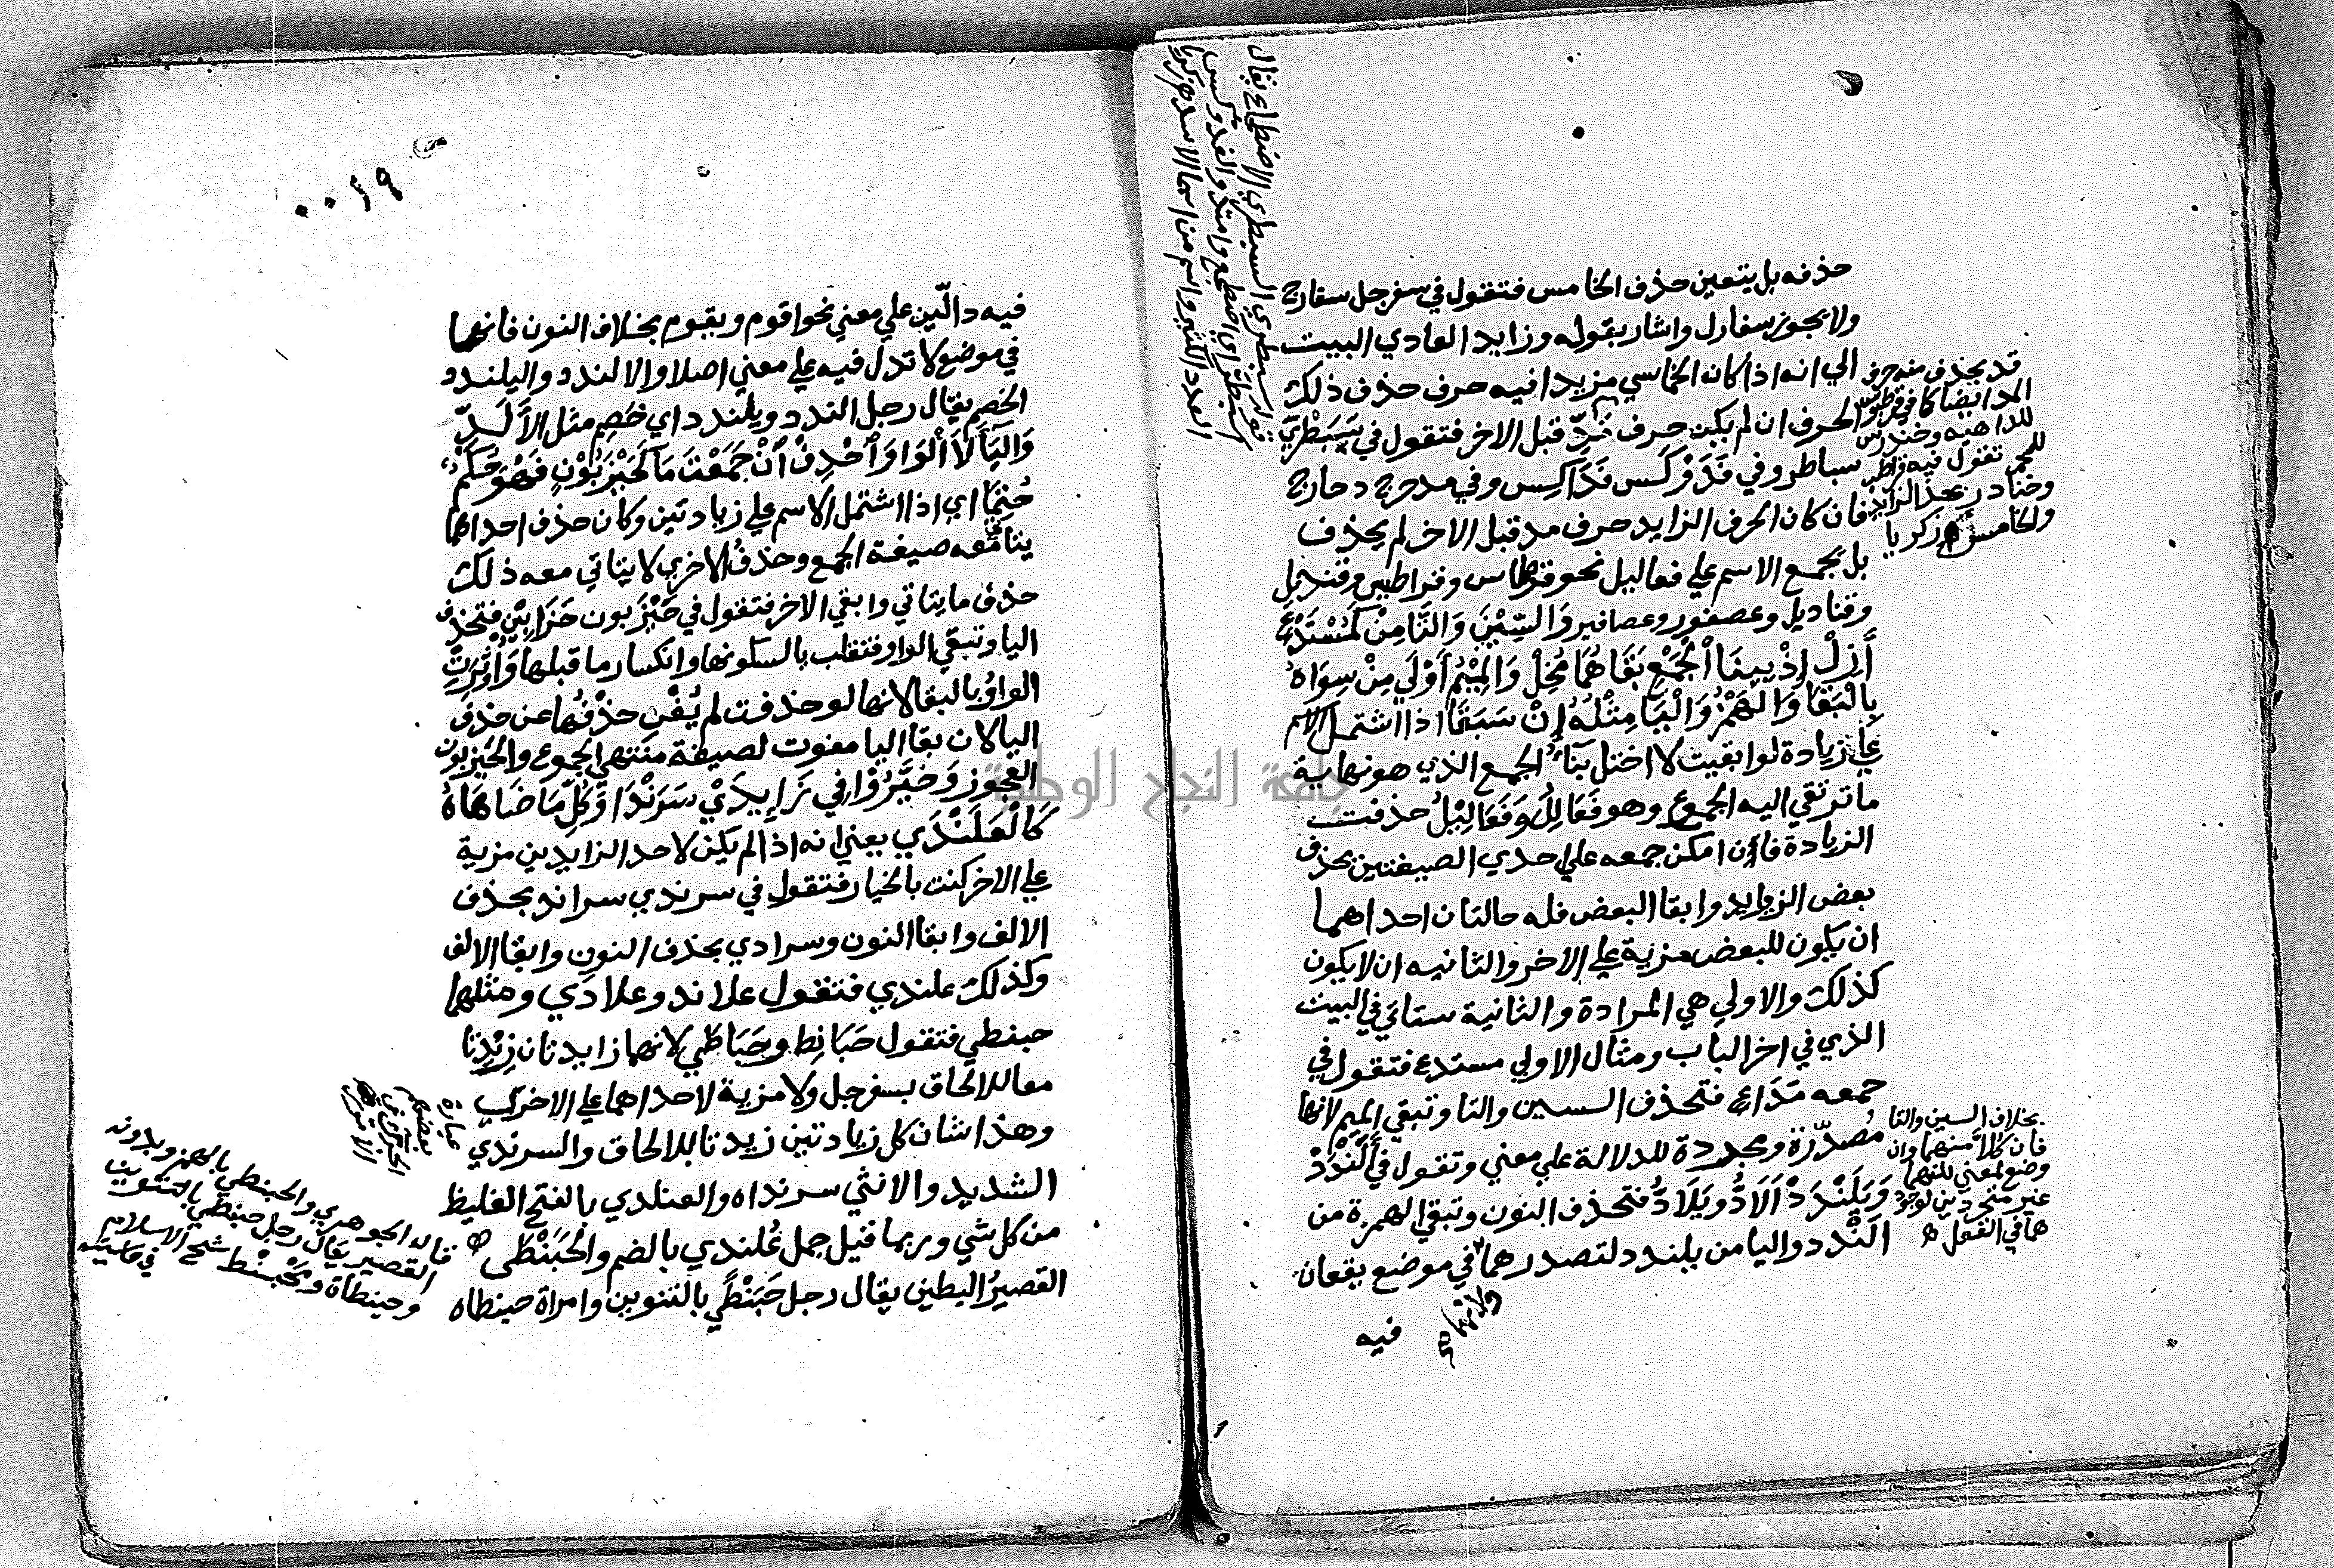 حذفه بل يتعين حذف الخامس فتقول في سفرجل سفارج
ولا يجوز سفارل واشار بقوله وزايد العادي البيت
الي انه اذا كان الخماسي مزيدا فيه حرف حذف ذلك
الحرف ان لم يكن حرف مدّ قبل الاخر فتقول في سَبَطْرِيّ
سباطر وفي فَدَوْكَس فَدَاكِس وفي مدحرج دحارج
فان كان الحرف الزايد حرف مد قبل الاخر لم يحذف
بل يجمع الاسم علي فعاليل نحو قرطاس وقراطيس وقنديل
وقناديل وعصفور وعصافير وَالسِّيْنَ وَالتَّا مِنْ كَمُسْتَدْعٍ
أَزِلْ إِذْ بِبِنَا الْجَمْعِ بَقَاهُمَا مُخِلْ وَالْمِيْمُ أَوْلَى مِنْ سِوَاهُ
بِالْبَقَا وَالهَمْزُ وَالْيَا مِثْلُهُ إِنْ سَبَقَا اذا اشتمل الاسم
علي زيادة لو ابقيت لا اختل بنآءُ الجمع الذي هو نهاية
ما ترتقي اليه الجموع وهو فَعَالِلُ وَفَعَالِيْلُ حذفت
الزيادة فان امكن جمعه علي احدي الصيغتين بحذف
بعض الزوايد وابقا البعض فله حالتان احداهما
ان يكون للبعض مزية علي الاخر والثانيه ان لا يكون
كذلك والاولي هي المرادة والثانية ستاتي في البيت
الذي في اخر الباب ومثال الاولي مستدع فتقول في
جمعه مَدَاعٍ فتحذف السين والتا وتبقي الميم لانها
مُصدّرة ومجردة للدلالة علي معني وتقول في أَلَنْدَدْ
وَيَلَنْدَدْ اَلَادُّ ويَلَادُّ فتحذف النون وتبقي الهمزة من
النْدد واليا من يلندد لتصدرهما في موضع يقعان
فيه
قد يحذف منه حرف
المد ايضا كما في قرطبوس
للداهيه وخندرس
للخمر تقول فيه قراطب
وخنادر بحذف الزايد
والخامس زكريا
بخلاف السين والتا
فان كلا منهما وان
وضع لمعني لكنهما
غير متجردين لوجود
هما في الفعل
قوله سبطري السبطري الاضطجاع يقال
اسبطر اي اضطجع وامتد والفدوكس
من اسما الاسد
فيه دالّين علي معني نحو اقوم ويقوم بخلاف النون فانها
في موضع لا تدل فيه علي معني اصلا والالندد واليلندد
الخصم يقال رجل الندد ويلندد اي خصِم مثل الأَلَدِّ
وَاليَا لَا الْوَاوَ أحْذِفْ أنْ جَمَعْتَ مَا كَحَيْزَبُوْنٍ فَهْوَ حُكْمٌ
حُتِمَا اي اذا اشتمل الاسم علي زيادتين وكان حذف احداهما
يتاتي معه صيغة الجمع وحذفُ الاخري لا يتاتي معه ذلك
حذف ما يتاتي وابقي الاخر فتقول في حَيْزَبون حَزَابِيْن فتحذف
اليا وتبقي الواو فتقلب يا لسكونها وانكسار ما قبلها وَأُوْثِرَتْ
الواوُ بالبقا لانها لو حذفت لم يُغْنِ حذْفُها عن حذف
اليا لان بقا اليا مفوت لصيغة منتهي الجموع والحيزبون
العجوز وَخَيَّرُوْا فِي زَايِدَيْ سَرَنْدَا وَكُلِّ مَا ضَاهَاهُ
كَالْعَلَنْدَي يعني انه اذا لم يكن لاحد الزايدين مزية
علي الاخر كنت بالخيار فتقول في سرندي سراند بحذف
الالف وابقا النون وسرادي بحذف النون وابقا الالف
وكذلك علندي فتقول علاند وعلادي ومثلهما
حبنطي فتقول حَبَانِط وحَبَاطَي لانهما زايدتان زِيْدتا
معا للالحاق بسفرجل ولا مزية لاحداهما علي الاخرى
وهذا شان كل زيادتين زيدتا للالحاق والسرندي
الشديد والانثي سرنداه والعنلدي بالفتح الغليظ
من كل شي وربما قيل جمل عُلندي بالضم والحَبَنْطَى
القصيرُ البطين يقال رجل حَبَنْطًي بالتنوين وامراة حبنطاه
قال الجوهري والحبنطي بالهمز وبدونه
القصير يقال رجل حبنطي بالتنوين
وحبنطاة ومُحْبَنْط شيخ الاسلام
في حاشيته
جامعة النجاح الوطنية